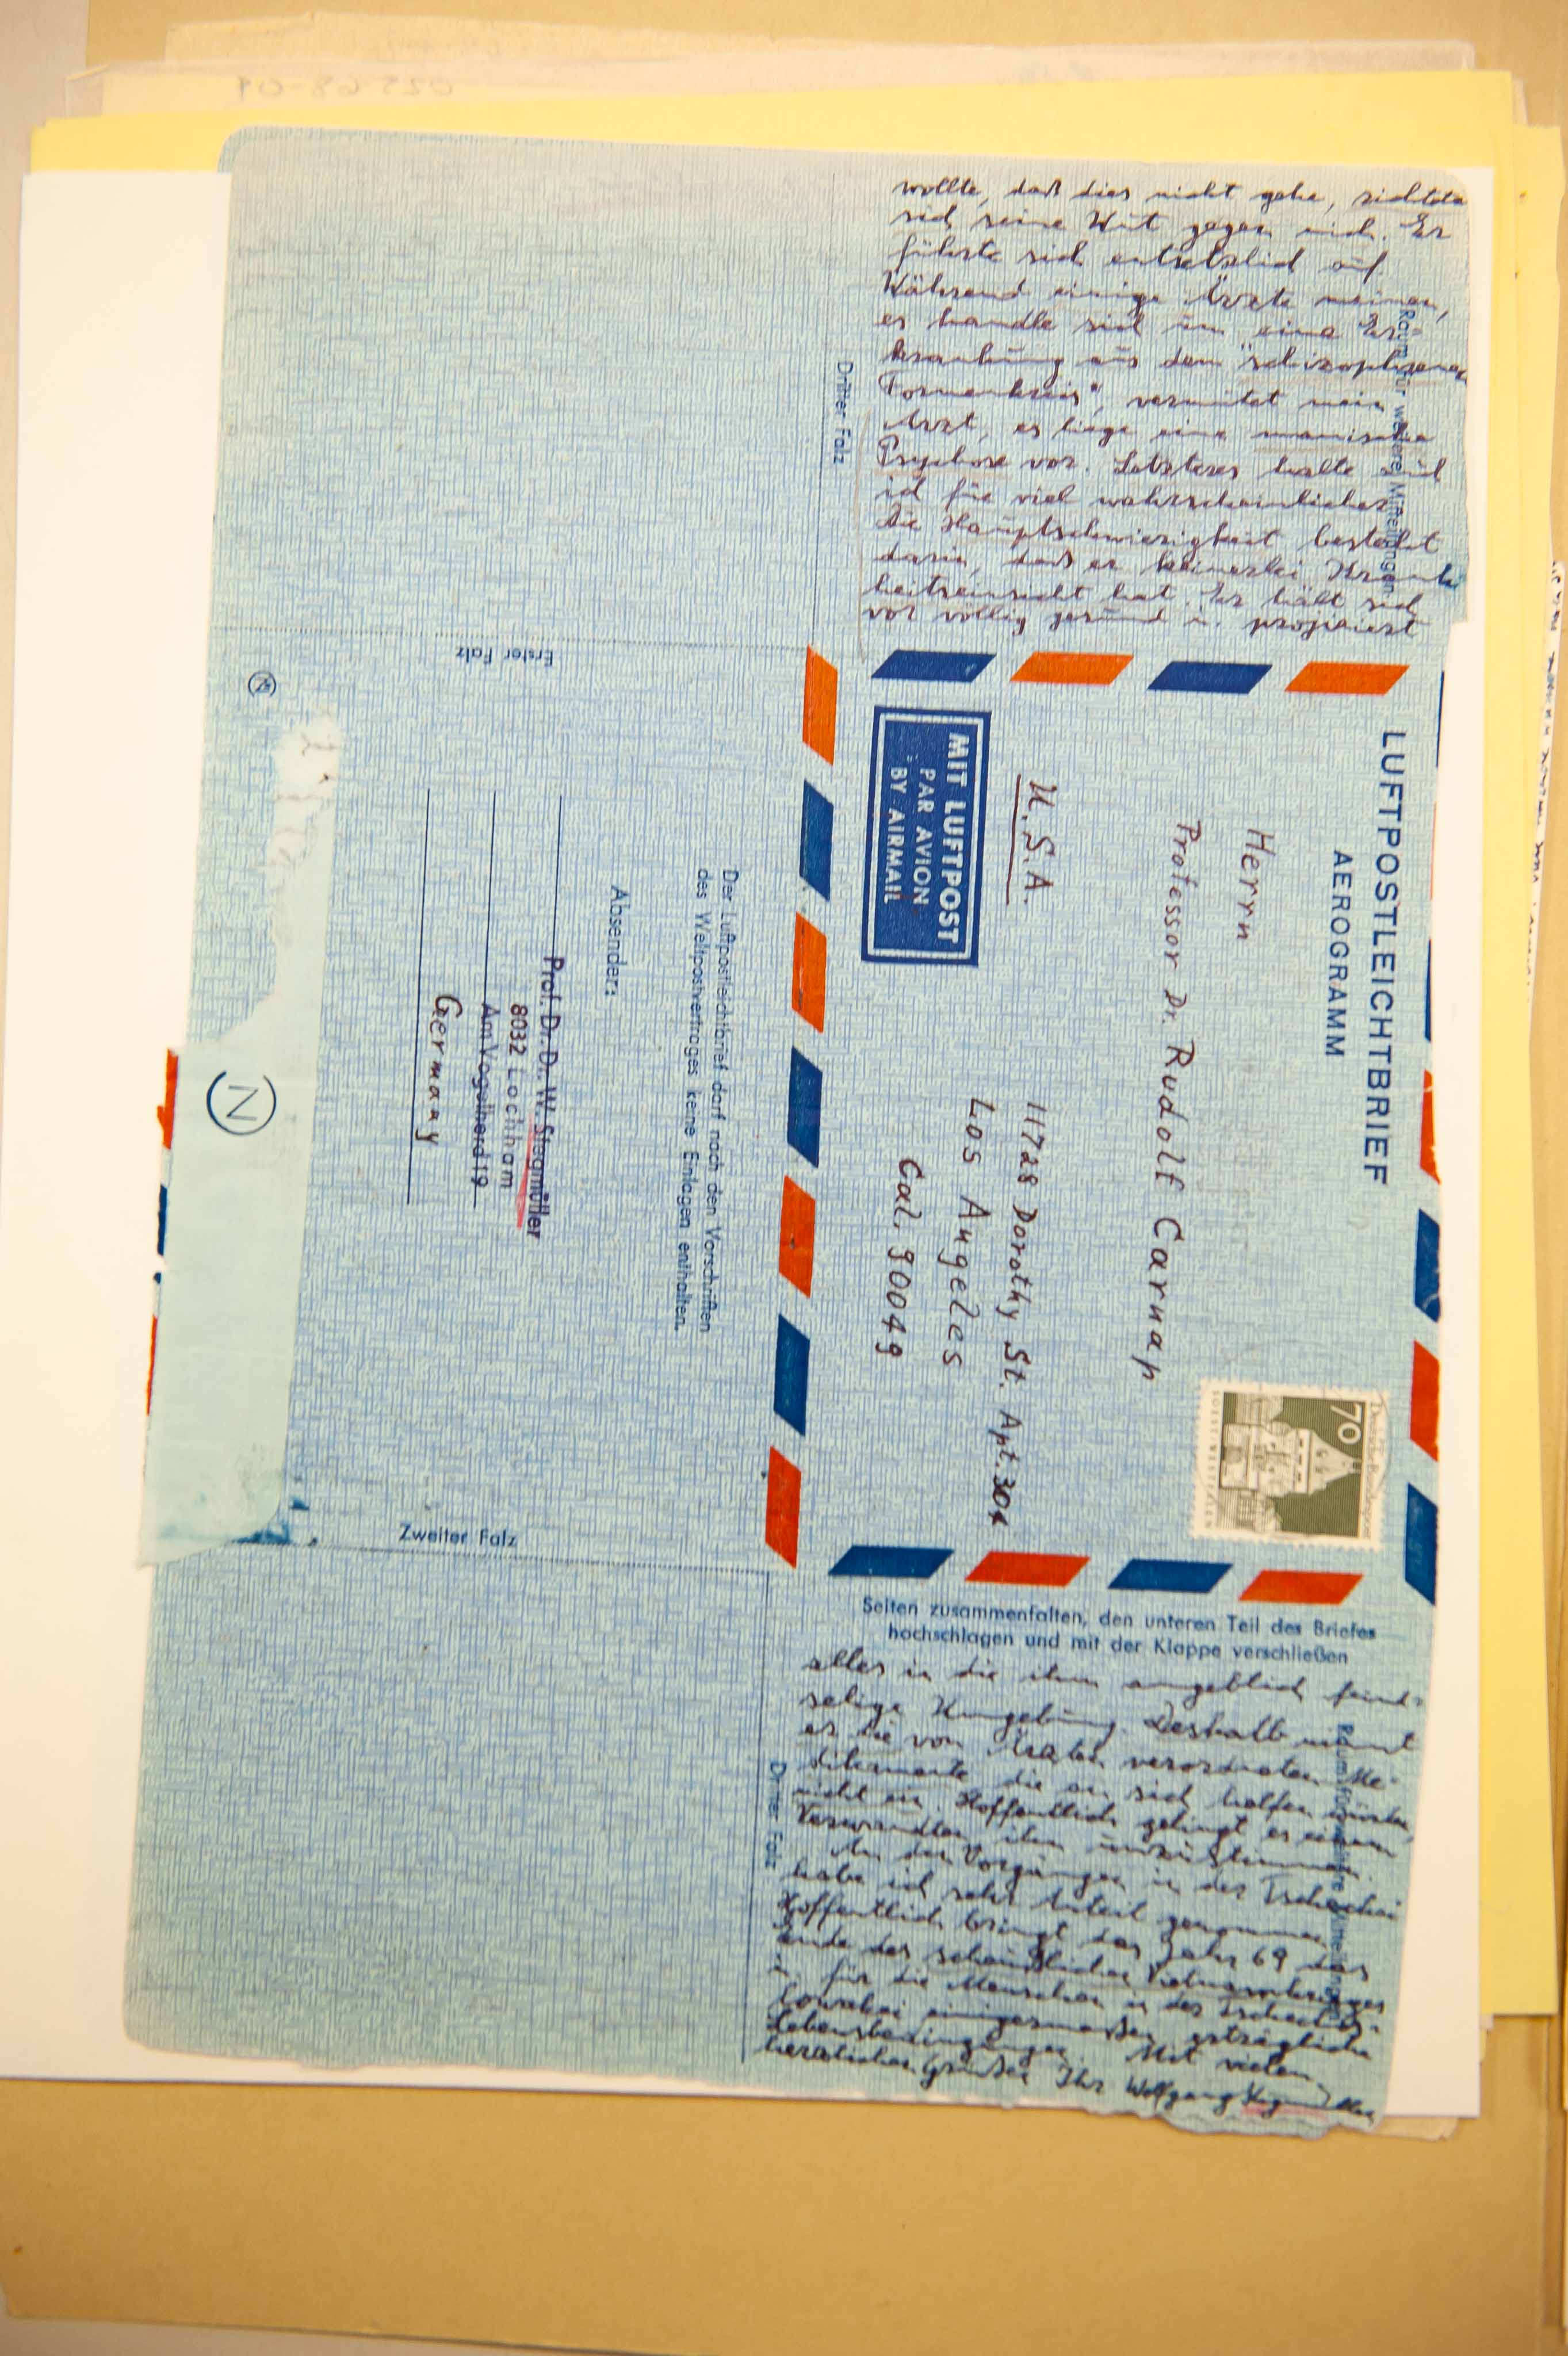 wollte, daß dies nicht gehe, richtete
sich seine Wut gegen mich. Er
führte sich entsetzlich auf.
Während einige Ärzte meinen,
es handle sich um eine Er-
krankung aus dem "schizophrenen
Formenkreis", vermutet mein
Arzt, es liege eine manische
Psychose vor. Letzteres halte auch
ich für viel wahrscheinlicher.
Die Hauptschwierigkeit besteht
darin, daß er keinerlei Krank-
heitseinsicht hat. Er hält sich
vor völlig gesund u. projiziert
Raum für weitere Mitteilungen
Dritter Falz
Erster Falz
LUFTPOSTLEICHTBRIEF
AEROGRAMM
Deutsche Bundespost
70
SOEST WESTFALEN
Herrn
Professor Dr. Rudolf Carnap
11728 Dorothy St. Apt. 304
U.S.A.
Los Angeles
Cal. 90049
MIT LUFTPOST
PAR AVION
BY AIRMAIL
Der Luftpostleichtbrief darf nach den Vorschriften
des Weltpostvertrages keine Einlagen enthalten.
Absender:
Prof. Dr. Dr. W. Stegmüller
8032 Lochham
Am Vogelherd 19
Germany
N
Zweiter Falz
Seiten zusammenfalten, den unteren Teil des Briefes
hochschlagen und mit der Klappe verschließen
alles in die ihm angeblich feind-
selige Umgebung. Deshalb nimmt
er die von Ärzten verordneten Me-
dikamente, die an sich helfen würden,
nicht ein. Hoffentlich gelingt es einem
Verwandten, ihn umzustimmen.
An den Vorgängen in der Tschechei
habe ich sehr Anteil genommen.
Hoffentlich bringt das Jahr 69 das
Ende des scheußlichen Vietnamkrieges
u. für die Menschen in der Tschecho-
slowakei einigermaßen erträgliche
Lebensbedingungen. Mit vielen
herzlichen Grüßen Ihr Wolfgang Stegmüller
Raum für weitere Mitteilungen
Dritter Falz
025-68-09